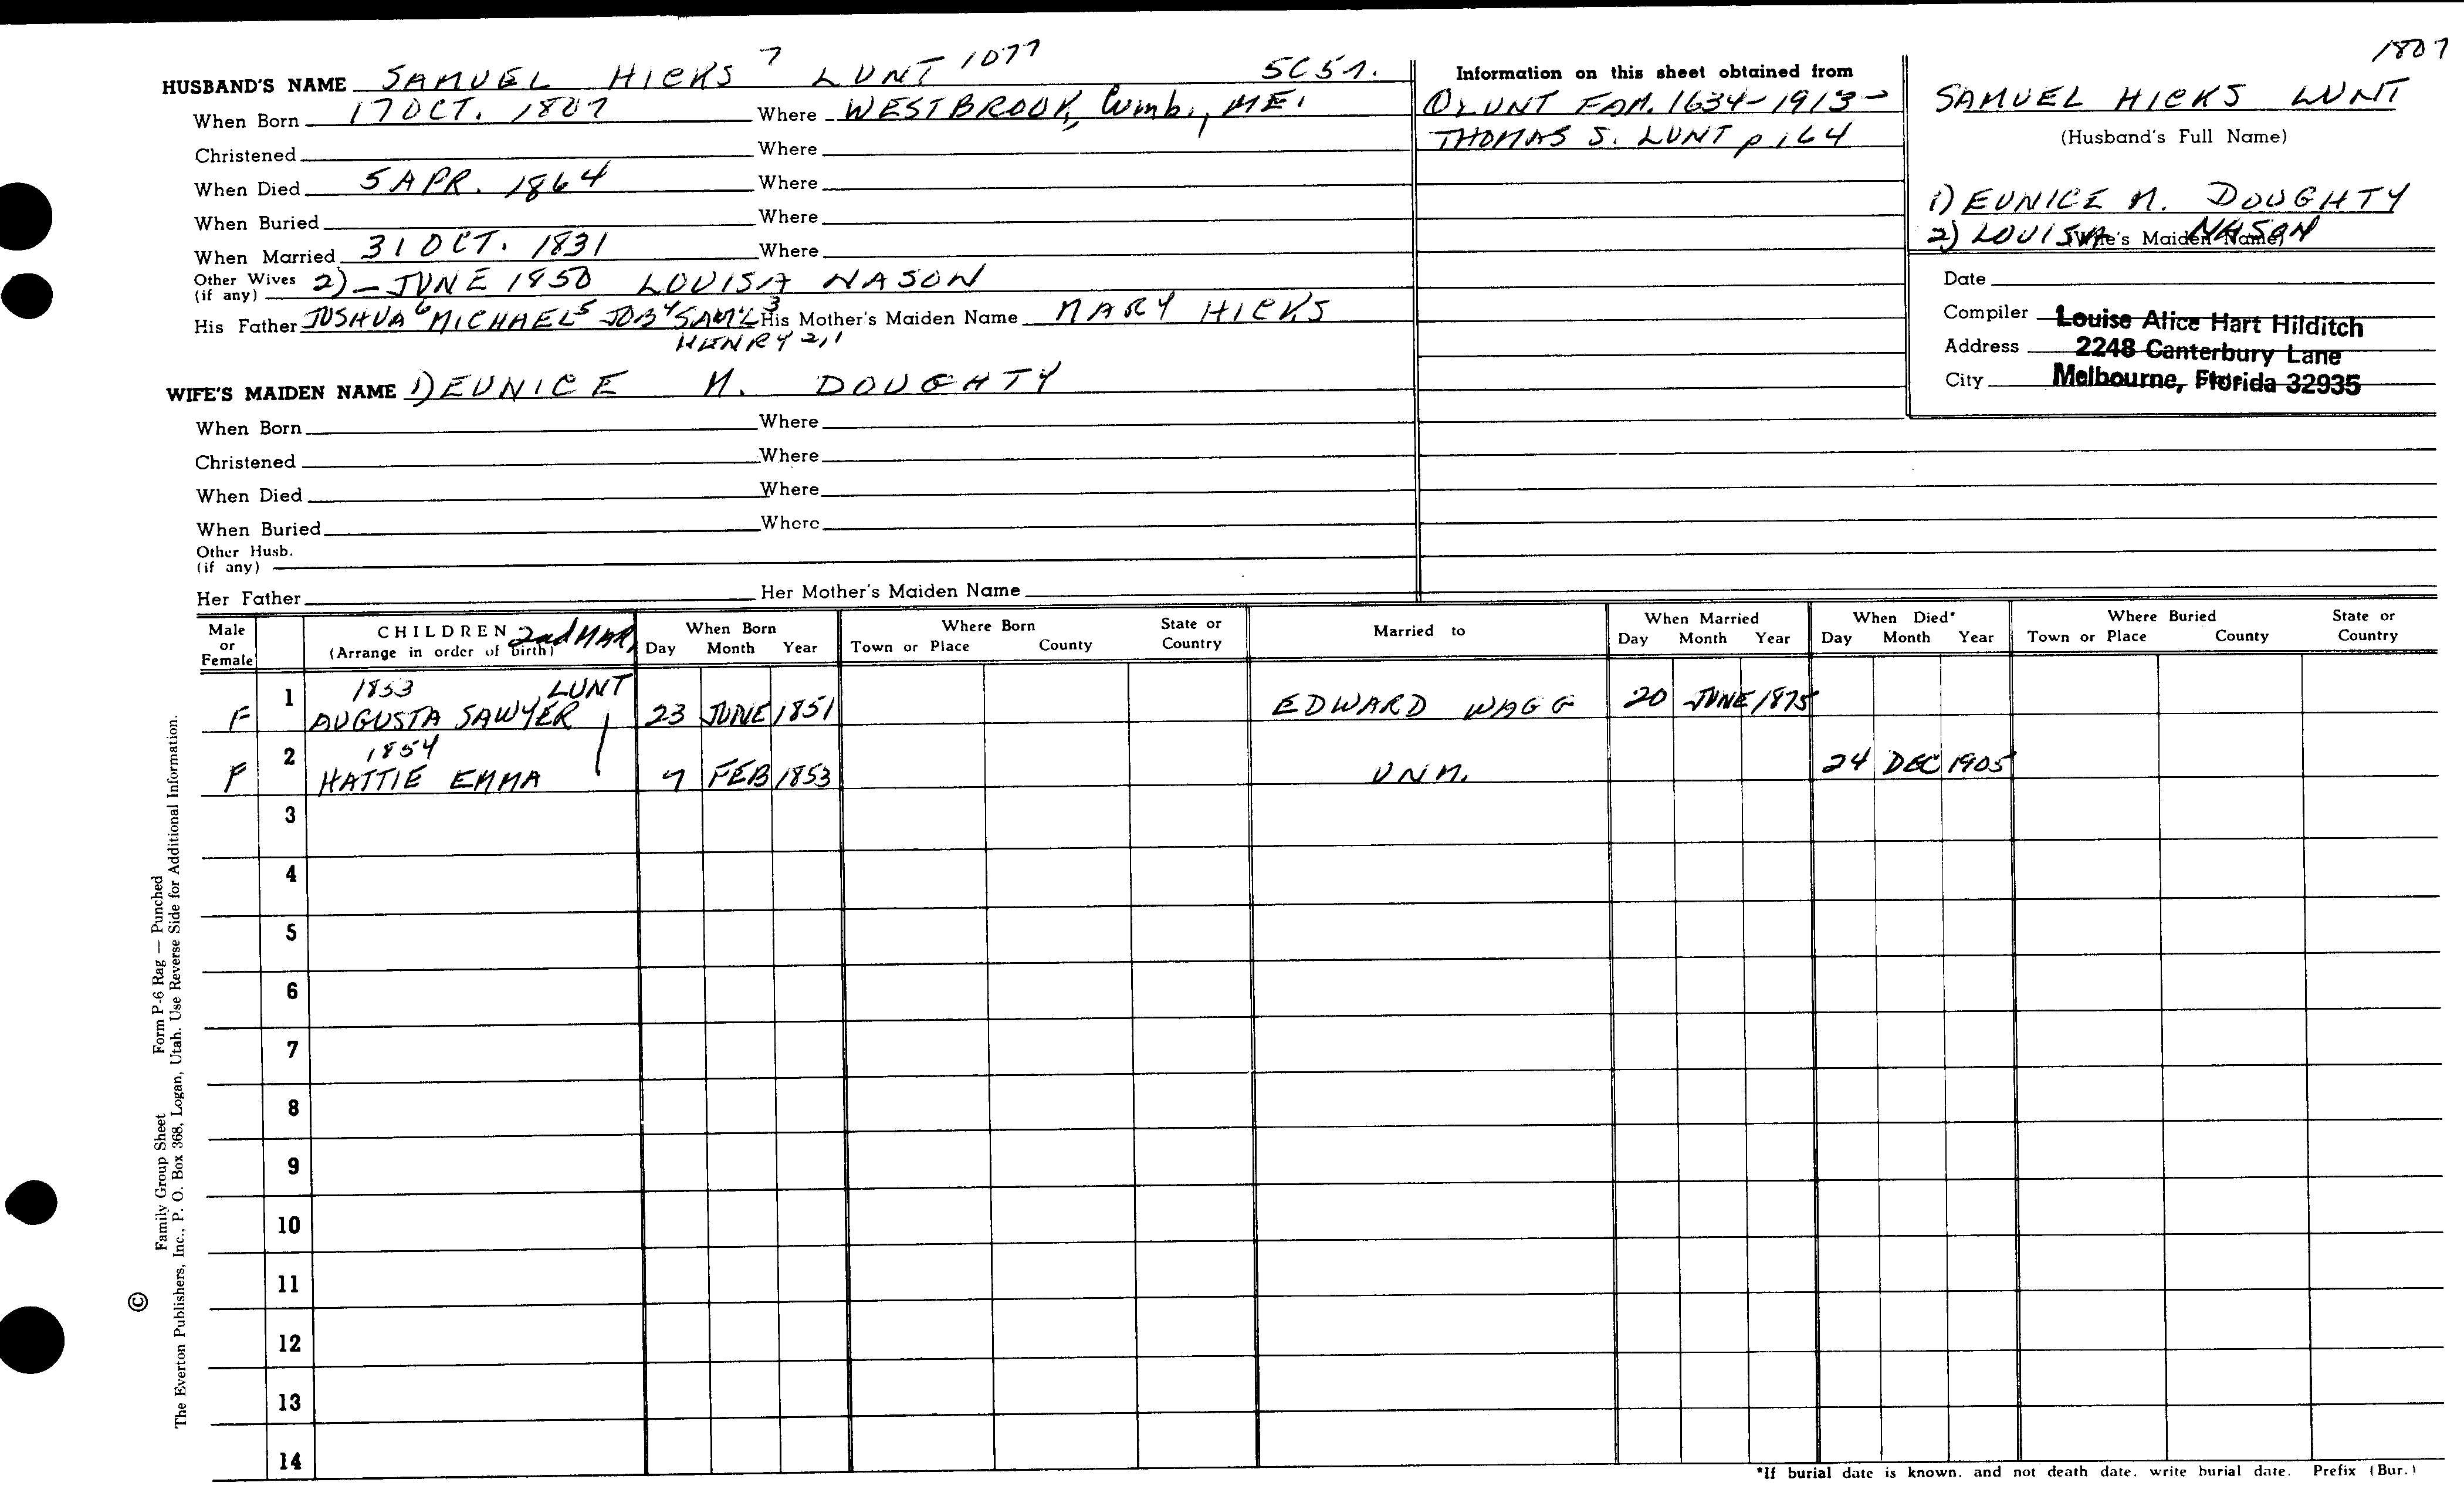 1807
HUSBAND'S NAME SAMUEL HICKS 7 LUNT 1077 5C57.
When Born 17 OCT. 1807 Where WESTBROOK, Cumb., ME.
Christened Where
When Died 5 APR. 1864 Where
When Buried Where
When Married 31 OCT. 1831 Where
Other Wives (if any) 2) - JUNE 1850 LOUISA NASON
His Father JOSHUA 6 MICHAEL 5 JOB 4 SAM'L 3 His Mother's Maiden Name MARY HICKS
HENRY 2,1
WIFE'S MAIDEN NAME 1) EUNICE M. DOUGHTY
When Born Where
Christened Where
When Died Where
When Buried Where
Other Husb.
(if any)
Her Father Her Mother's Maiden Name
Information on this sheet obtained from
LUNT FAM. 1634-1913-
THOMAS S. LUNT p 164
SAMUEL HICKS LUNT
(Husband's Full Name)
1) EUNICE M. DOUGHTY
2) LOUISA NASON
(Wife's Maiden Name)
Date
Compiler Louise Alice Hart Hilditch
Address 2248 Canterbury Lane
City Melbourne, Florida 32935
Male or Female
CHILDREN 2nd MAR.
(Arrange in order of birth)
When Born
Day Month Year
Where Born
Town or Place County State or Country
Married to
When Married
Day Month Year
When Died*
Day Month Year
Where Buried
Town or Place County State or Country
1853 LUNT
F 1 AUGUSTA SAWYER 23 JUNE 1851 EDWARD WAGG 20 JUNE 1875
1854
F 2 HATTIE EMMA 7 FEB 1853 UNM. 24 DEC 1905
3
4
5
6
7
8
9
10
11
12
13
14
*If burial date is known, and not death date, write burial date. Prefix (Bur.)
© Family Group Sheet Form P-6 Rag — Punched
The Everton Publishers, Inc., P. O. Box 368, Logan, Utah. Use Reverse Side for Additional Information.